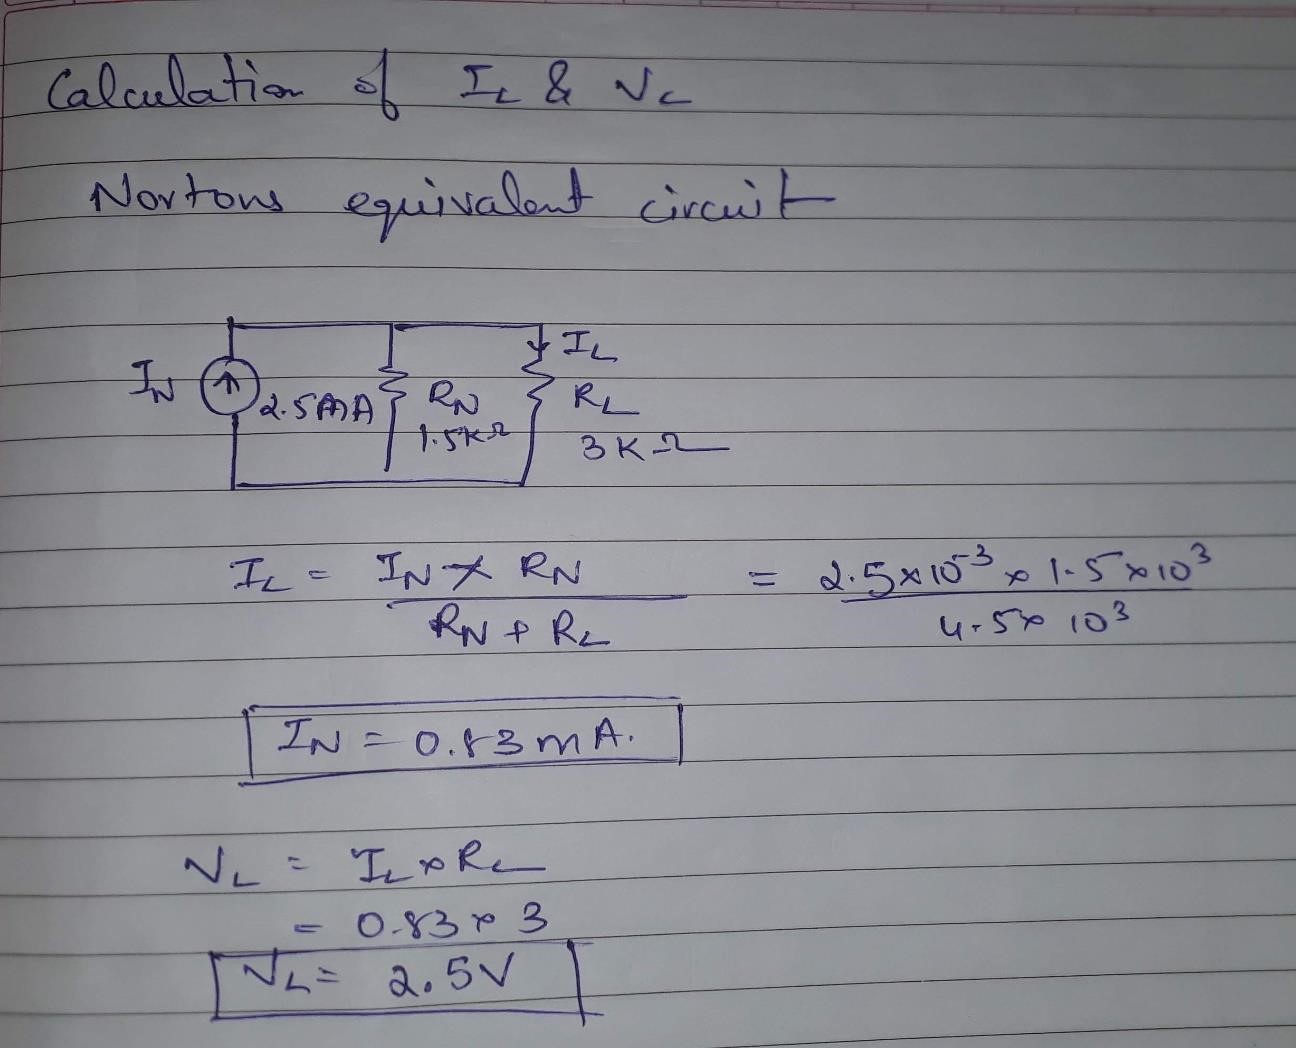 Calculation of IL & VL
Nortons equivalent circuit
IN 2.5mA RN 1.5KΩ IL RL 3KΩ
IL = IN × RN / RN + RL = 2.5×10^-3 × 1.5×10^3 / 4.5×10^3
IN = 0.83mA.
VL = IL×RL
= 0.83×3
VL = 2.5V